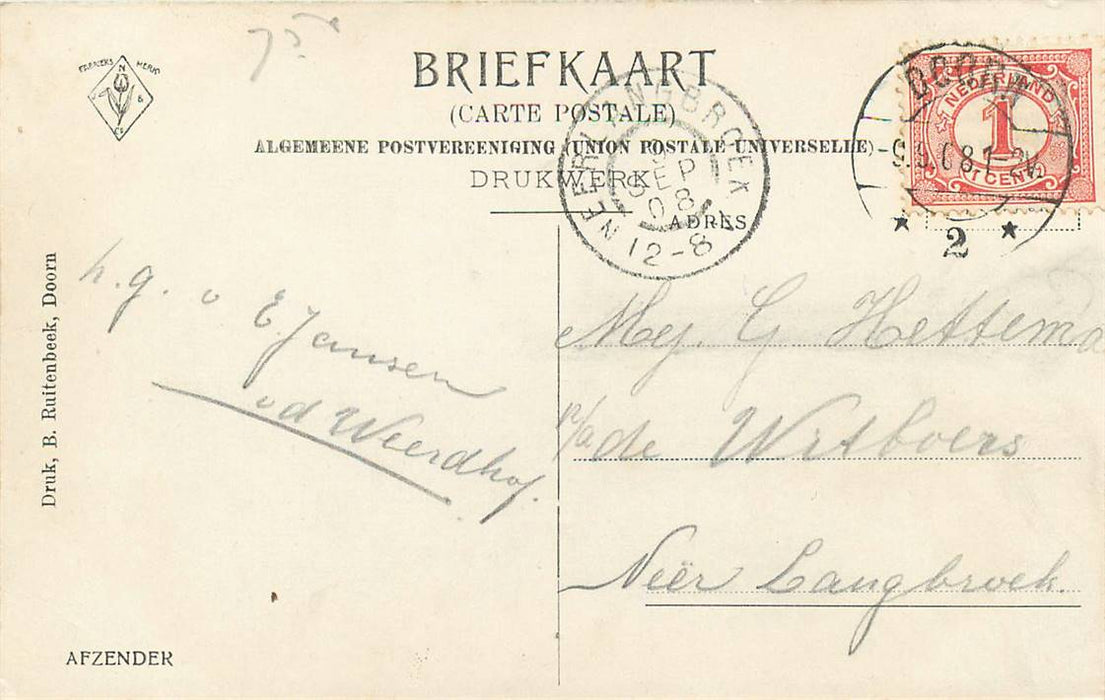 75
FABRIEKS MERK
N
BRIEFKAART
(CARTE POSTALE)
ALGEMEENE POSTVEREENIGING (UNION POSTALE UNIVERSELLE)
DRUKWERK
ADRES
NEERLANGBROEK
9
SEP
08
12-8
DOORN
-9.9.08 1-2½
2
NEDERLAND
1
CENT
h.g. v E. Jansen
v d Weerdhof.
Mej. G Hettema
p/a de Witboers
Neêr Langbroek.
Druk, B. Ruitenbeek, Doorn
AFZENDER